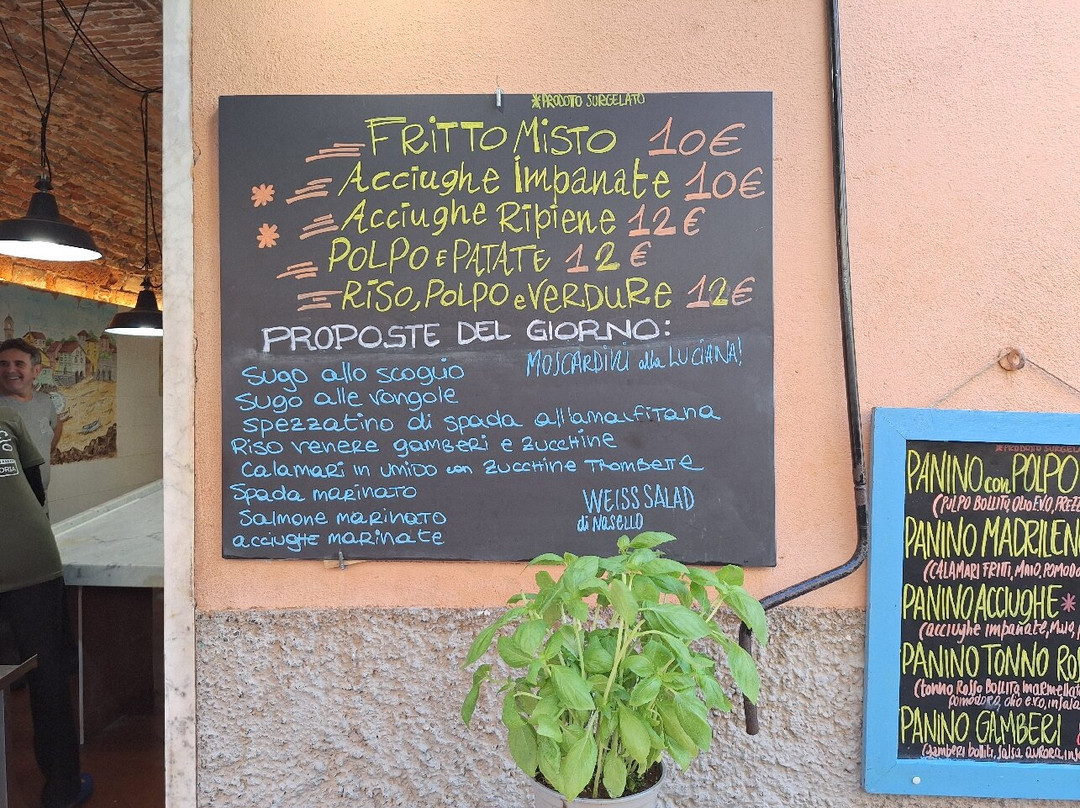 *PRODOTTO SURGELATO
FRITTO MISTO 10€
* Acciughe Impanate 10€
* Acciughe Ripiene 12€
POLPO E PATATE 12€
RISO, POLPO e VERDURE 12€
PROPOSTE DEL GIORNO:
MOSCARDINI alla LUCIANA!
Sugo allo scoglio
Sugo alle vongole
spezzatino di spada all'amalfitana
Riso venere gamberi e zucchine
Calamari in umido con zucchine Trombette
Spada marinato
Salmone marinato
acciughe marinate
WEISS SALAD
di NASELLO
PANINO con POLPO
(POLPO BOLLITO, OLIO EVO,
PANINO MADRILEN
(CALAMARI FRITTI, MAIO, POMODO
PANINO ACCIUGHE *
(acciughe impanate, Maio,
PANINO TONNO ROS
(tonno Rosso BOLLITO, marmellat
pomodoro, olio evo, insala
PANINO GAMBERI
(Gamberi bolliti, salsa aurora, ins